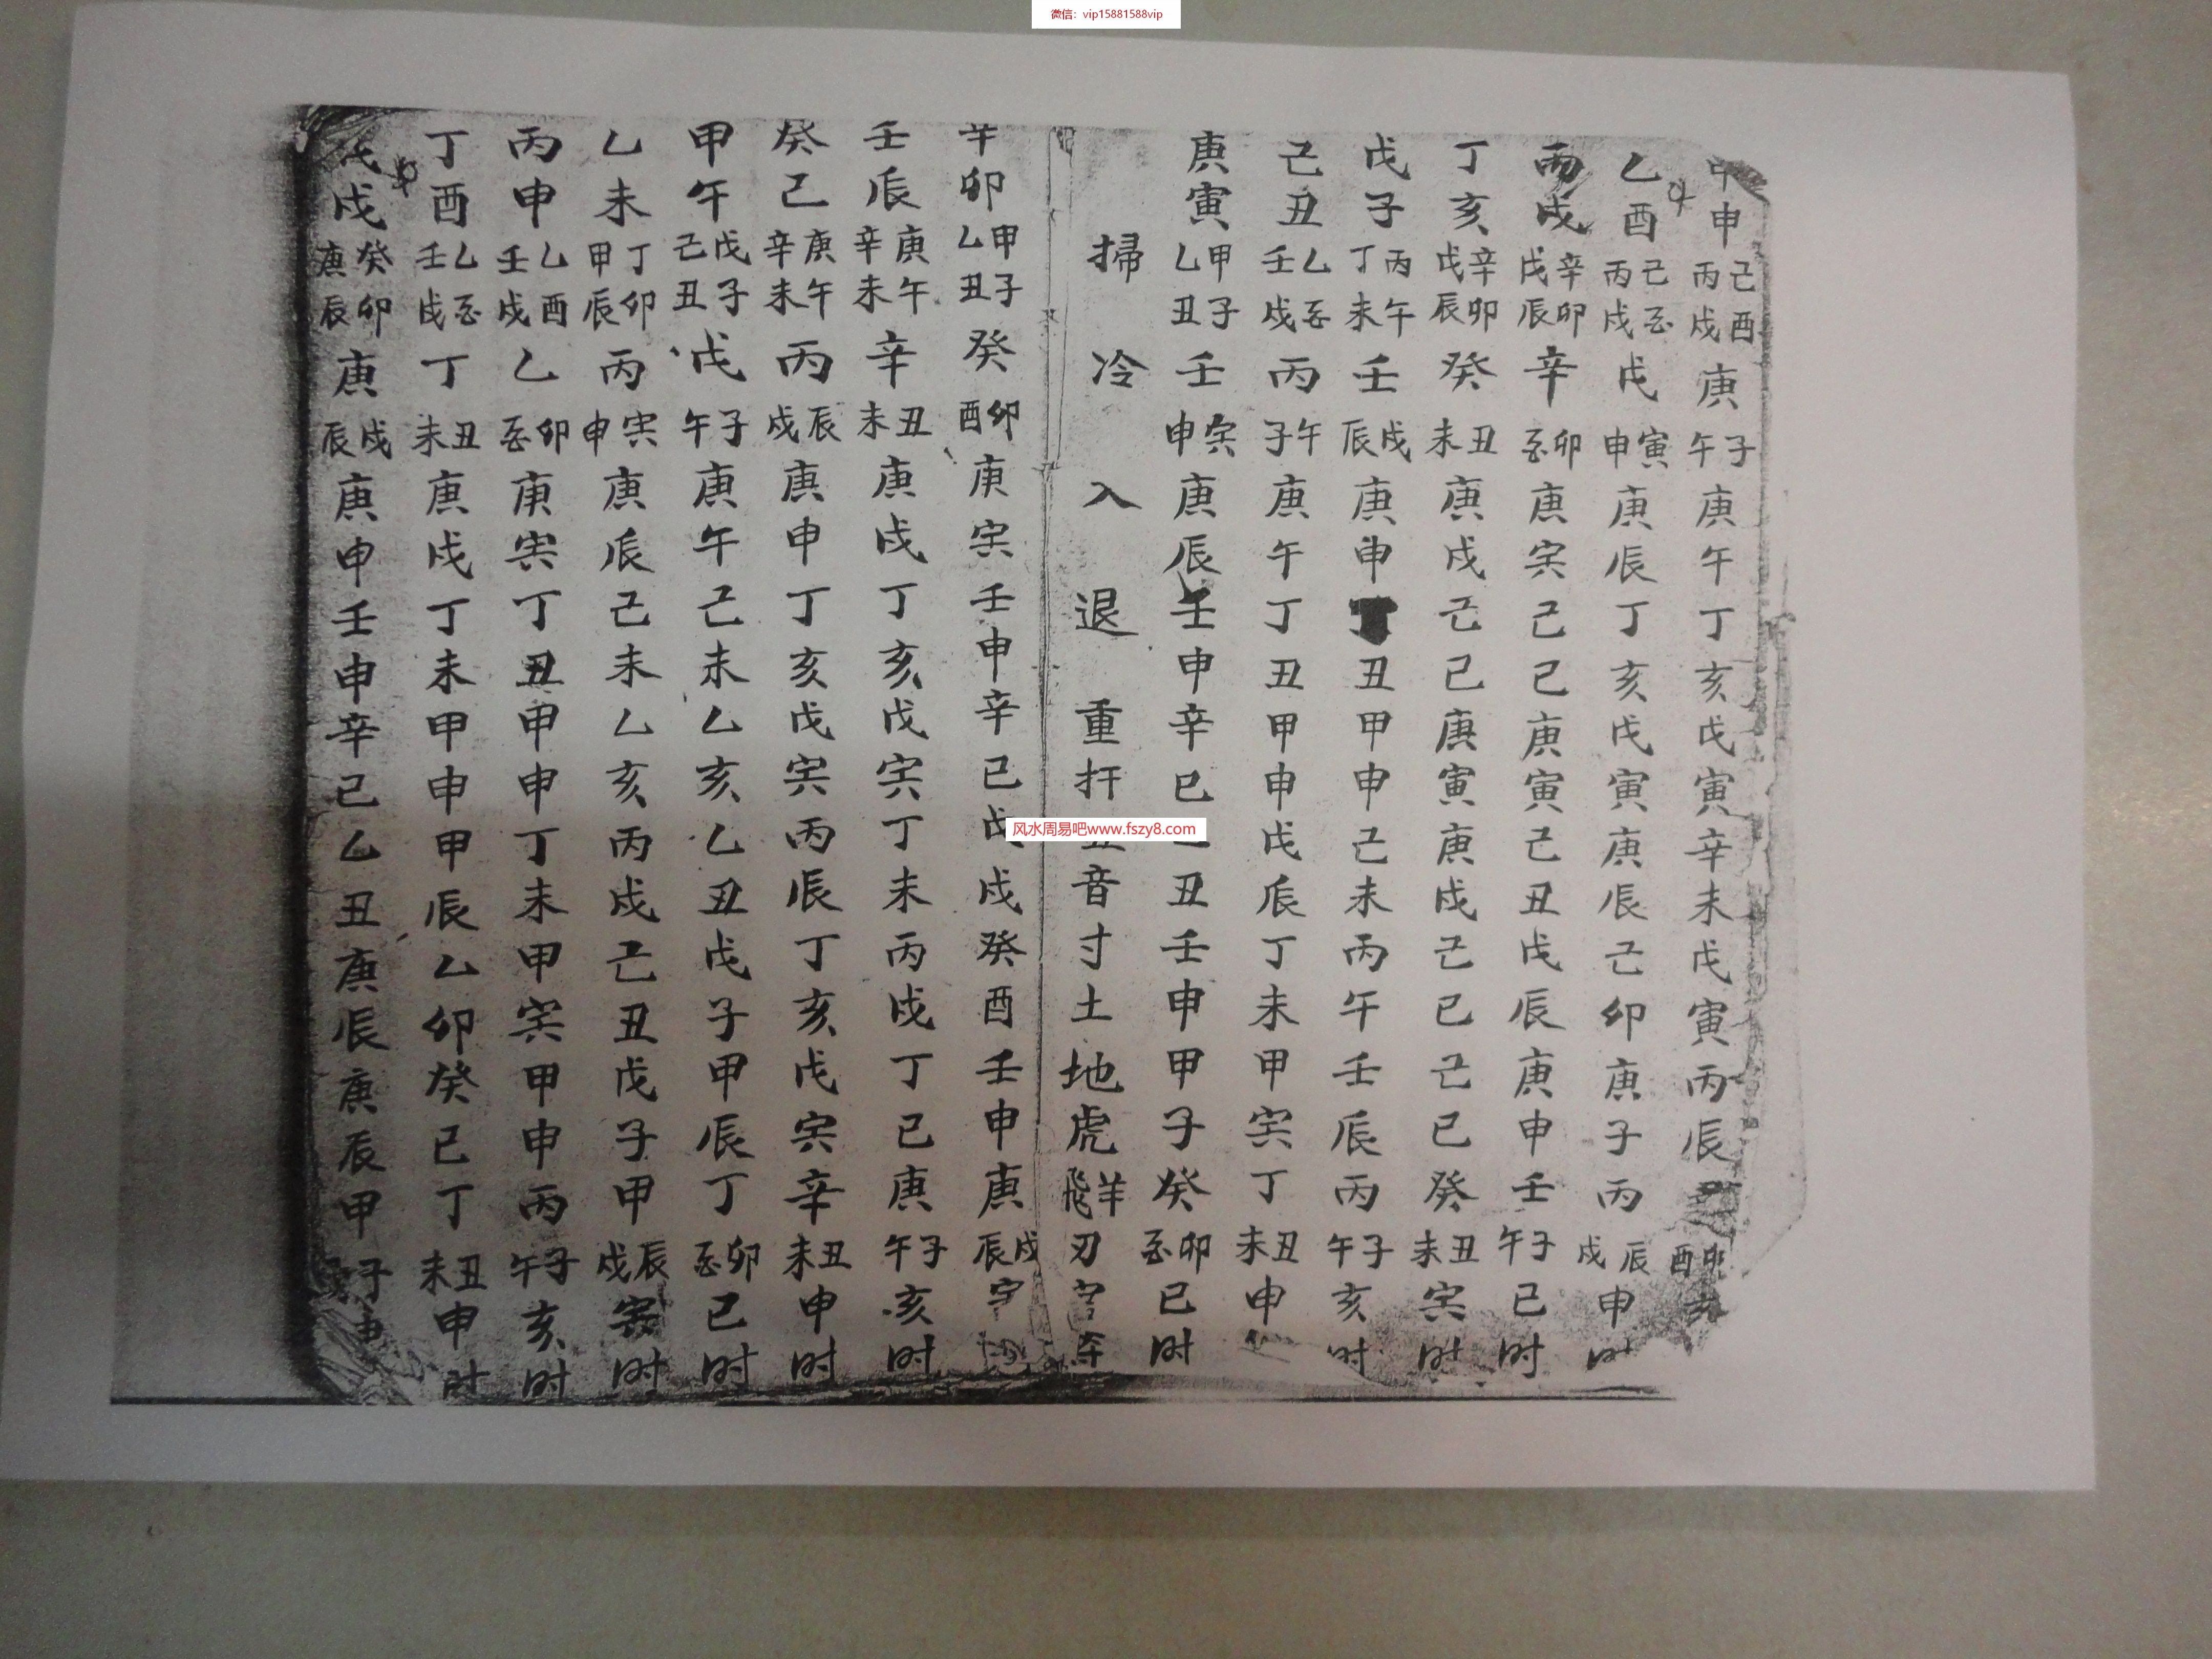 微信：vip15881588vip
申申己酉丙戌庚子午庚午丁亥戊寅辛未戊寅丙辰卯酉亥
乙酉己丙戌戊寅申庚辰丁亥戊寅庚辰己卯庚子丙辰戌申时
丙戌辛卯戊辰辛卯庚寅己巳庚寅己丑戊辰庚申壬子午巳时
丁亥辛卯戊辰癸丑未庚戌己巳庚寅庚戌己巳己巳癸丑未寅时
戊子丙午丁未壬戌辰庚申丑甲申己未丙午壬辰丙子午亥时
己丑乙壬戌丙午子庚午丁丑甲申戊辰丁未甲寅丁丑未申
庚寅甲子乙丑壬寅申庚辰壬申辛巳丑壬申甲子癸卯巳时
掃冷入退重扦音寸土地虎羊飛刃
风水周易吧www.fszy8.com
辛卯甲子乙丑癸卯酉庚寅壬申辛巳戌癸酉壬申庚戌辰
壬辰庚午辛未辛丑未庚戌丁亥戊寅丁未丙戌丁巳庚子午亥时
癸巳庚午辛未丙辰戌庚申丁亥戊寅丙辰丁亥戊寅辛丑未申时
甲午戊子己丑戊子午庚午己未乙亥乙丑戊子甲辰丁卯巳时
乙未丁卯甲辰丙寅申庚辰己未乙亥丙戌己丑戊子甲辰戌寅时
丙申乙酉壬戌乙卯庚寅丁丑申申丁未甲寅甲申丙子午亥时
丁酉乙壬戌丁丑未庚戌丁未甲申甲辰乙卯癸巳丁丑未申时
戊戌癸卯庚辰庚戌辰庚申壬申辛巳乙丑庚辰庚辰甲子